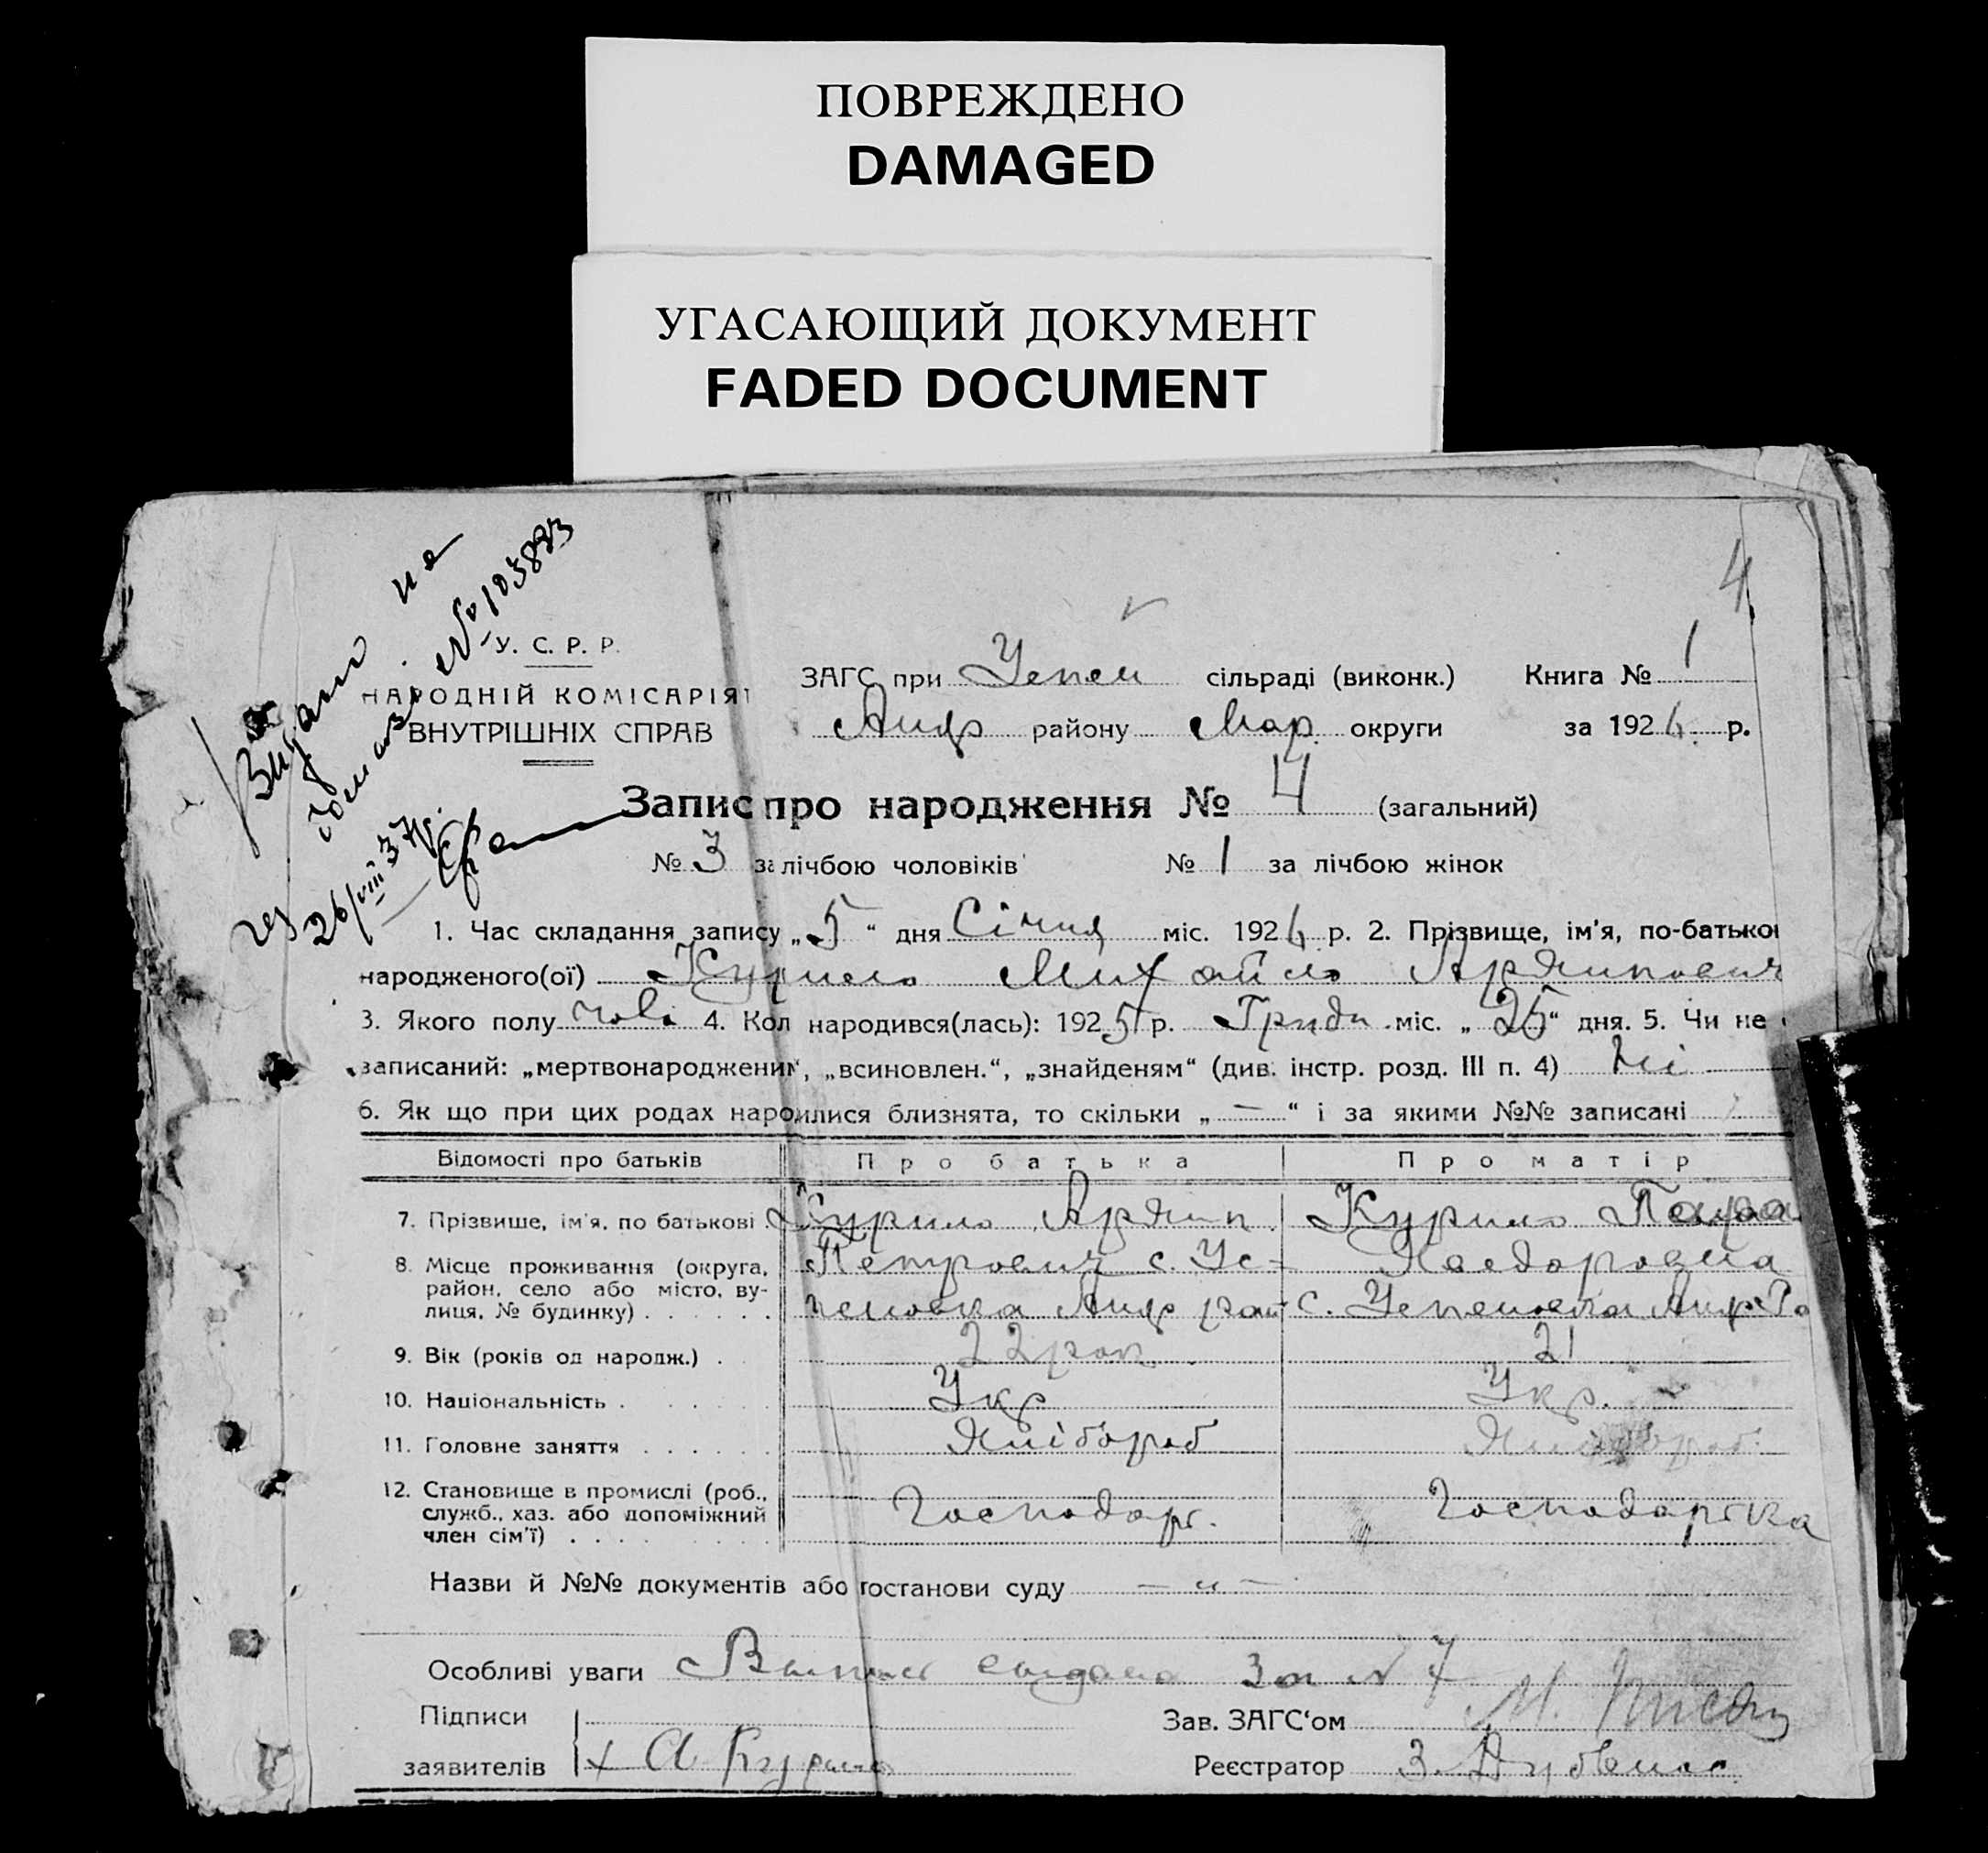 ПОВРЕЖДЕНО
DAMAGED
УГАСАЮЩИЙ ДОКУМЕНТ
FADED DOCUMENT
4
Видано на
№103883
26/VIII 37р.
У. С. Р. Р.
НАРОДНІЙ КОМІСАРІЯТ
ВНУТРІШНІХ СПРАВ
ЗАГС при Успен сільраді (виконк.) Книга № 1
Андр району Мар. округи за 1926 р.
Запис про народження № 4 (загальний)
№ 3 за лічбою чоловіків № 1 за лічбою жінок
1. Час складання запису „5“ дня Січня міс. 1926 р. 2. Прізвище, ім'я, по-батькові
народженого(ої) Курило Михайло Архипович
3. Якого полу чолв 4. Кол народився(лась): 1925 р. Грудн міс. „25“ дня. 5. Чи не
записаний: „мертвонароджений“, „всиновлен.“, „знайденям“ (див. інстр. розд. III п. 4) Ні
6. Як що при цих родах народилися близнята, то скільки „—“ і за якими №№ записані
Відомості про батьків Про батька Про матір
7. Прізвише, ім'я, по батькові Курило Архип Курило
8. Місце проживання (округа, Петрович с. Ус- Хведоровна
район, село або місто, ву- пеновка Андр рай с. Успеновка Андр Ра
лиця, № будинку)
9. Вік (років од народж.) 22 рок 21
10. Національність Укр Укр.
11. Головне заняття Хлібороб Хлібороб
12. Становище в промислі (роб., служб., хаз. або допоміжний член сім'ї) Господар. Господарка
Назви й №№ документів або постанови суду — „ —
Особливі уваги Выпись выдана За № 7
Підписи
заявителів + А Курило
Зав. ЗАГС'ом М.
Реєстратор З.